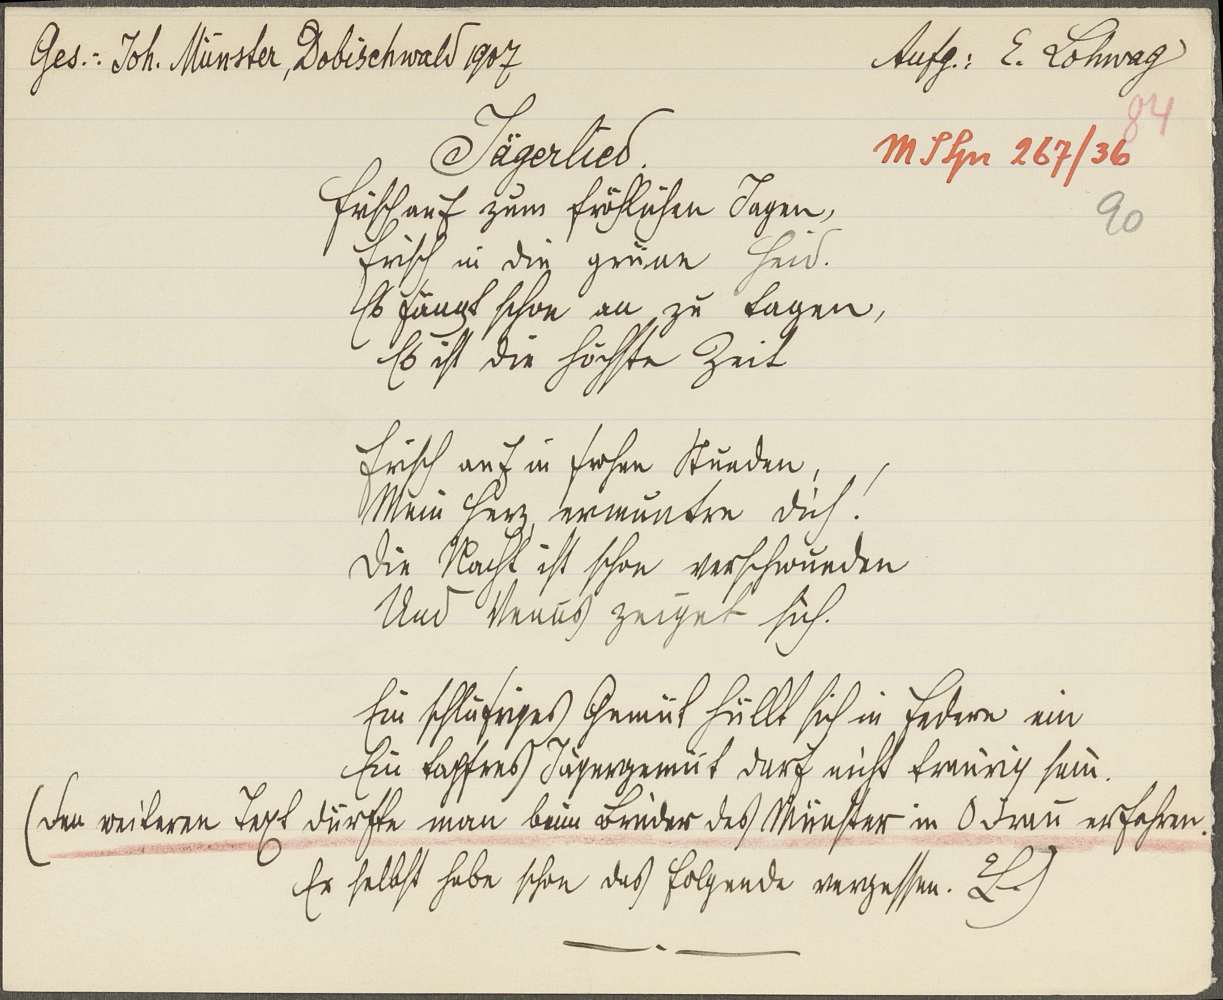 Ges.: Joh. Münster, Dobischwald 1907
Aufg.: E. Lohwag
84
M Shn 267/36
90
Jägerlied.
Frisch auf zum fröhlichen Jagen,
Frisch in die grüne Heid.
Es fängt schon an zu tagen,
Es ist die höchste Zeit
Frisch auf in frohen Stunden,
Mein Herz, ermuntre dich!
Die Nacht ist schon verschwunden
Und Venus zeiget sich.
Ein schläfriges Gemüt hüllt sich in Federn ein
Ein tapfres Jägergemüt darf nicht traurig sein.
(Den weiteren Text dürfte man beim Bruder des Münster in Odrau erfahren.
Er selbst habe schon das Folgende vergessen. L.)